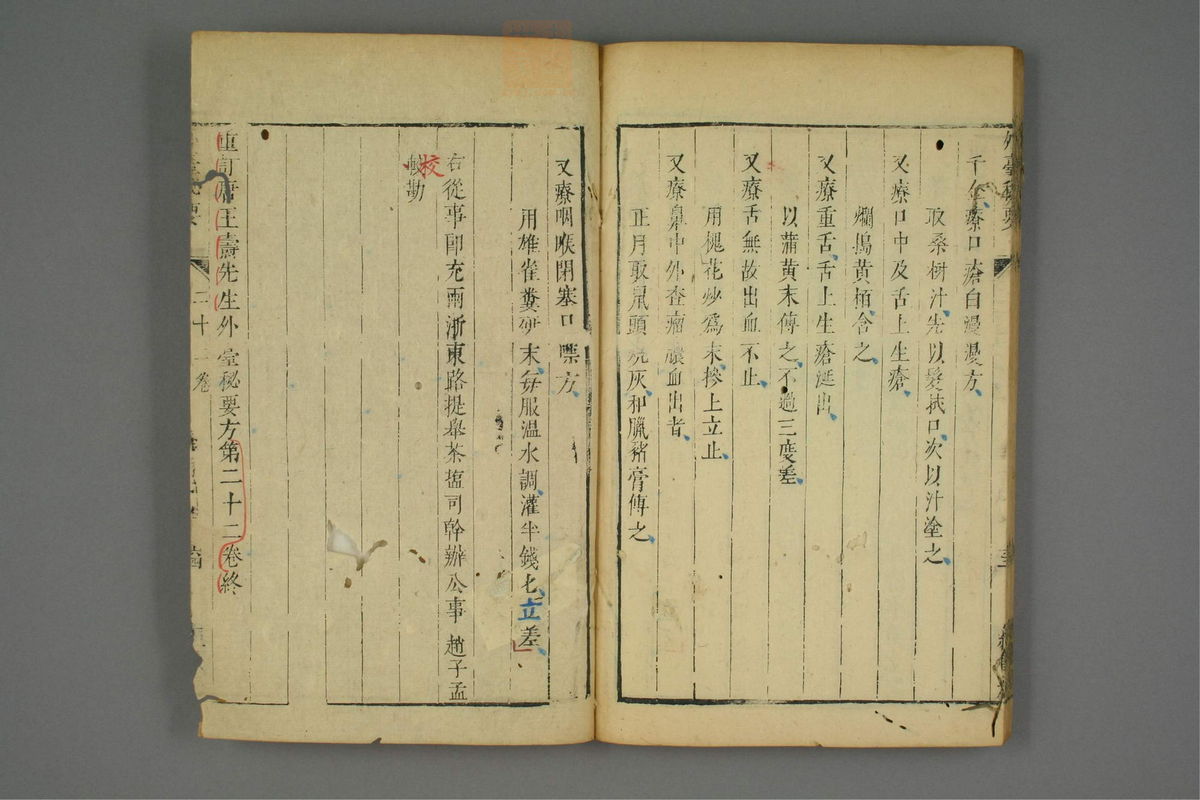 外臺秘要
千金療口瘡白漫漫方
取桑樹汁先以髮拭口次以汁塗之
又療口中及舌上生瘡
爛搗黃栢含之
又療重舌舌上生瘡涎出
以蒲黃末傅之不過三度差
又療舌無故出血不止
用槐花炒爲末摻上立止
又療鼻中外查瘤膿血出者
正月取鼠頭燒灰和臘豬膏傅之
又療咽喉閉塞口噤方
用雄雀糞研末每服溫水調灌半錢匕立差
右從事郎充兩浙東路提舉茶鹽司幹辦公事趙子孟
校勘
重訂唐王燾先生外臺秘要方第二十二卷終
二十二卷